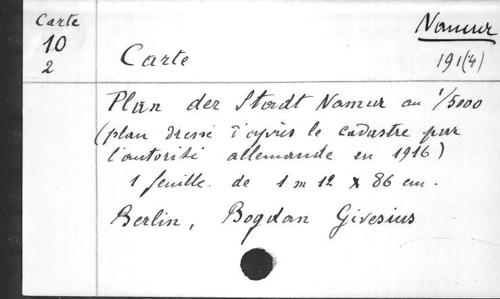 Carte
10
2
Namur
191(4)
Carte
Plan der Stadt Namur au 1/5000
(plan dressé d'après le cadastre par
l'autorité allemande en 1916)
1 feuille. de 1 m 12 x 86 cm.
Berlin, Bogdan Givesius